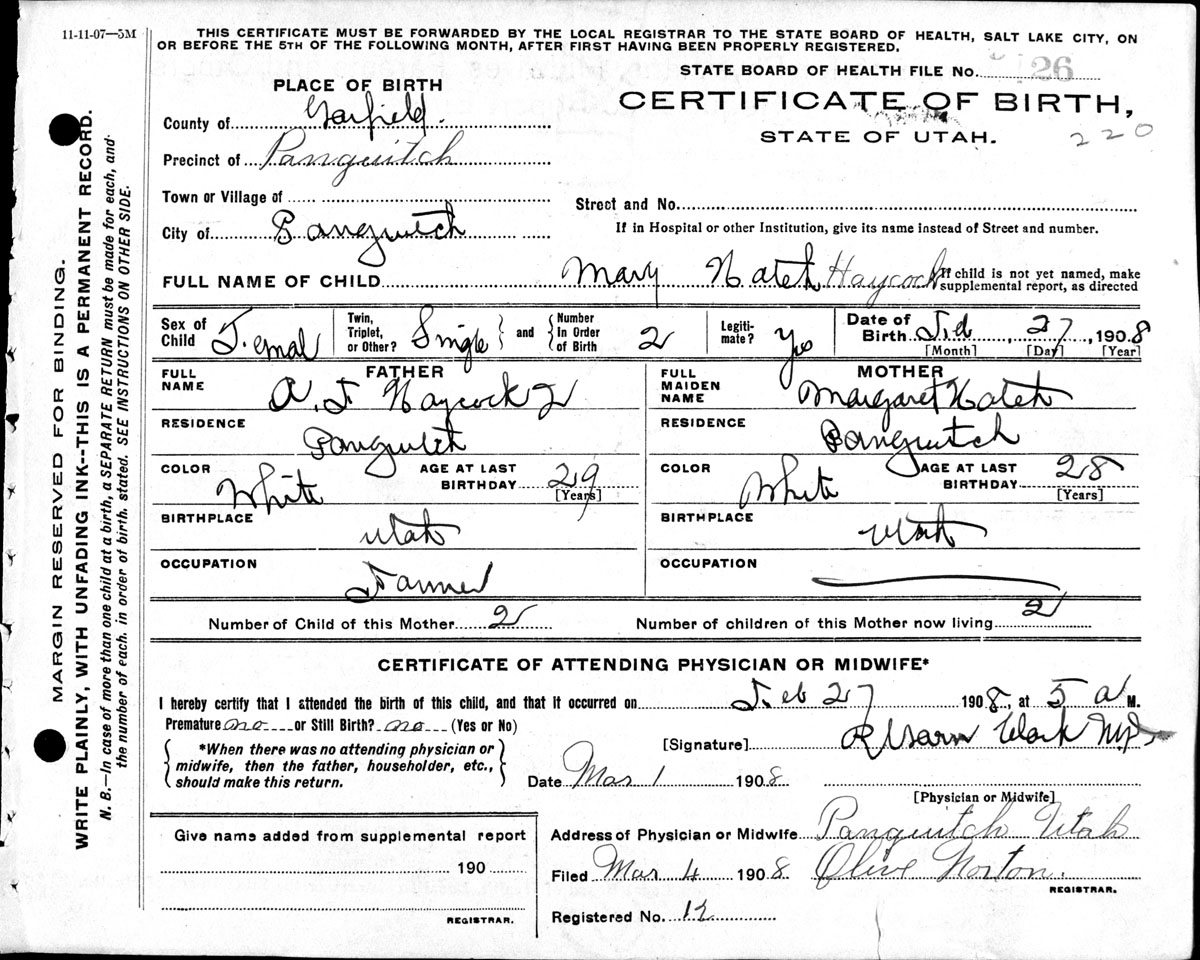 11-11-07—5M
THIS CERTIFICATE MUST BE FORWARDED BY THE LOCAL REGISTRAR TO THE STATE BOARD OF HEALTH, SALT LAKE CITY, ON
OR BEFORE THE 5TH OF THE FOLLOWING MONTH, AFTER FIRST HAVING BEEN PROPERLY REGISTERED.
STATE BOARD OF HEALTH FILE No. 26
PLACE OF BIRTH
CERTIFICATE OF BIRTH,
STATE OF UTAH.
220
County of Garfield.
Precinct of Panguitch
Town or Village of
Street and No.
City of Panguitch
If in Hospital or other Institution, give its name instead of Street and number.
FULL NAME OF CHILD Mary Hatch Haycock
If child is not yet named, make
supplemental report, as directed
Sex of Child Femal
Twin, Triplet, or Other? Single and Number In Order of Birth 2
Legitimate? Yes
Date of Birth Feb 27, 1908
[Month] [Day] [Year]
FATHER
FULL NAME A. F Haycock
RESIDENCE
Panguitch
COLOR White
AGE AT LAST BIRTHDAY 29 [Years]
BIRTHPLACE
Utah
OCCUPATION
Farmer
MOTHER
FULL MAIDEN NAME Margaret Hatch
RESIDENCE
Panguitch
COLOR White
AGE AT LAST BIRTHDAY 28 [Years]
BIRTHPLACE
Utah
OCCUPATION
Number of Child of this Mother 2
Number of children of this Mother now living 2
CERTIFICATE OF ATTENDING PHYSICIAN OR MIDWIFE*
I hereby certify that I attended the birth of this child, and that it occurred on Feb 27 1908, at 5 a M.
Premature no or Still Birth? no (Yes or No)
*When there was no attending physician or
midwife, then the father, householder, etc.,
should make this return.
[Signature] Clark MD
Date Mar 1 1908
[Physician or Midwife]
Give name added from supplemental report
190
REGISTRAR.
Address of Physician or Midwife Panguitch Utah
Filed Mar 4 1908 Olive Norton.
REGISTRAR.
Registered No. 12
MARGIN RESERVED FOR BINDING.
WRITE PLAINLY, WITH UNFADING INK--THIS IS A PERMANENT RECORD.
N. B.—In case of more than one child at a birth, a SEPARATE RETURN must be made for each, and
the number of each. in order of birth. stated. SEE INSTRUCTIONS ON OTHER SIDE.